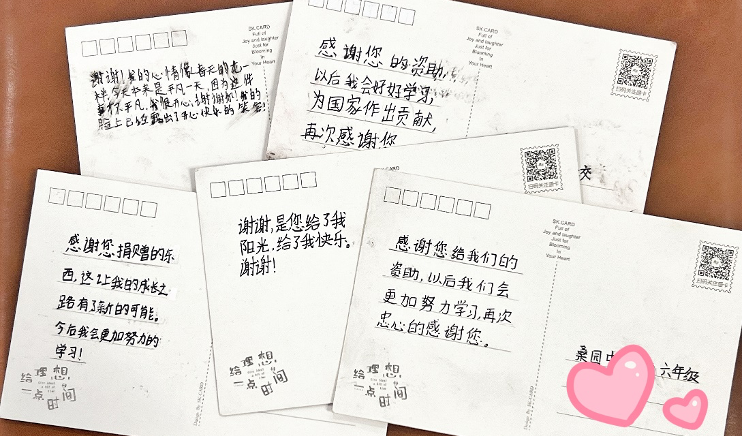 SK.CARD
Full of
Joy and laughter
Just for
Blooming
in
Your Heart
谢谢!我的心情像春天的花一
样,今天本来是平凡一天,因为这件
事不平凡,我很开心,谢谢你!我的
脸上已经露出了开心快乐的笑容!
SK.CARD
Full of
Joy and laughter
Just for
Blooming
in
Your Heart
扫码关注盛卡
感谢您的资助,
以后我会好好学习,
为国家作出贡献,
再次感谢你
交
感谢您捐赠的东
西,这让我的成长之
路有了新的可能。
今后我会更加努力的
学习!
给理想
一点时间
扫码关注盛卡
谢谢,是您给了我
阳光,给了我快乐。
谢谢!
给理想
一点时间
SK.CARD
Full of
Joy and laughter
Just for
Blooming
in
Your Heart
扫码关注盛卡
感谢您给我们的
资助,以后我们会
更加努力学习,再次
忠心的感谢您。
桑园
六年级
给理想
一点时间